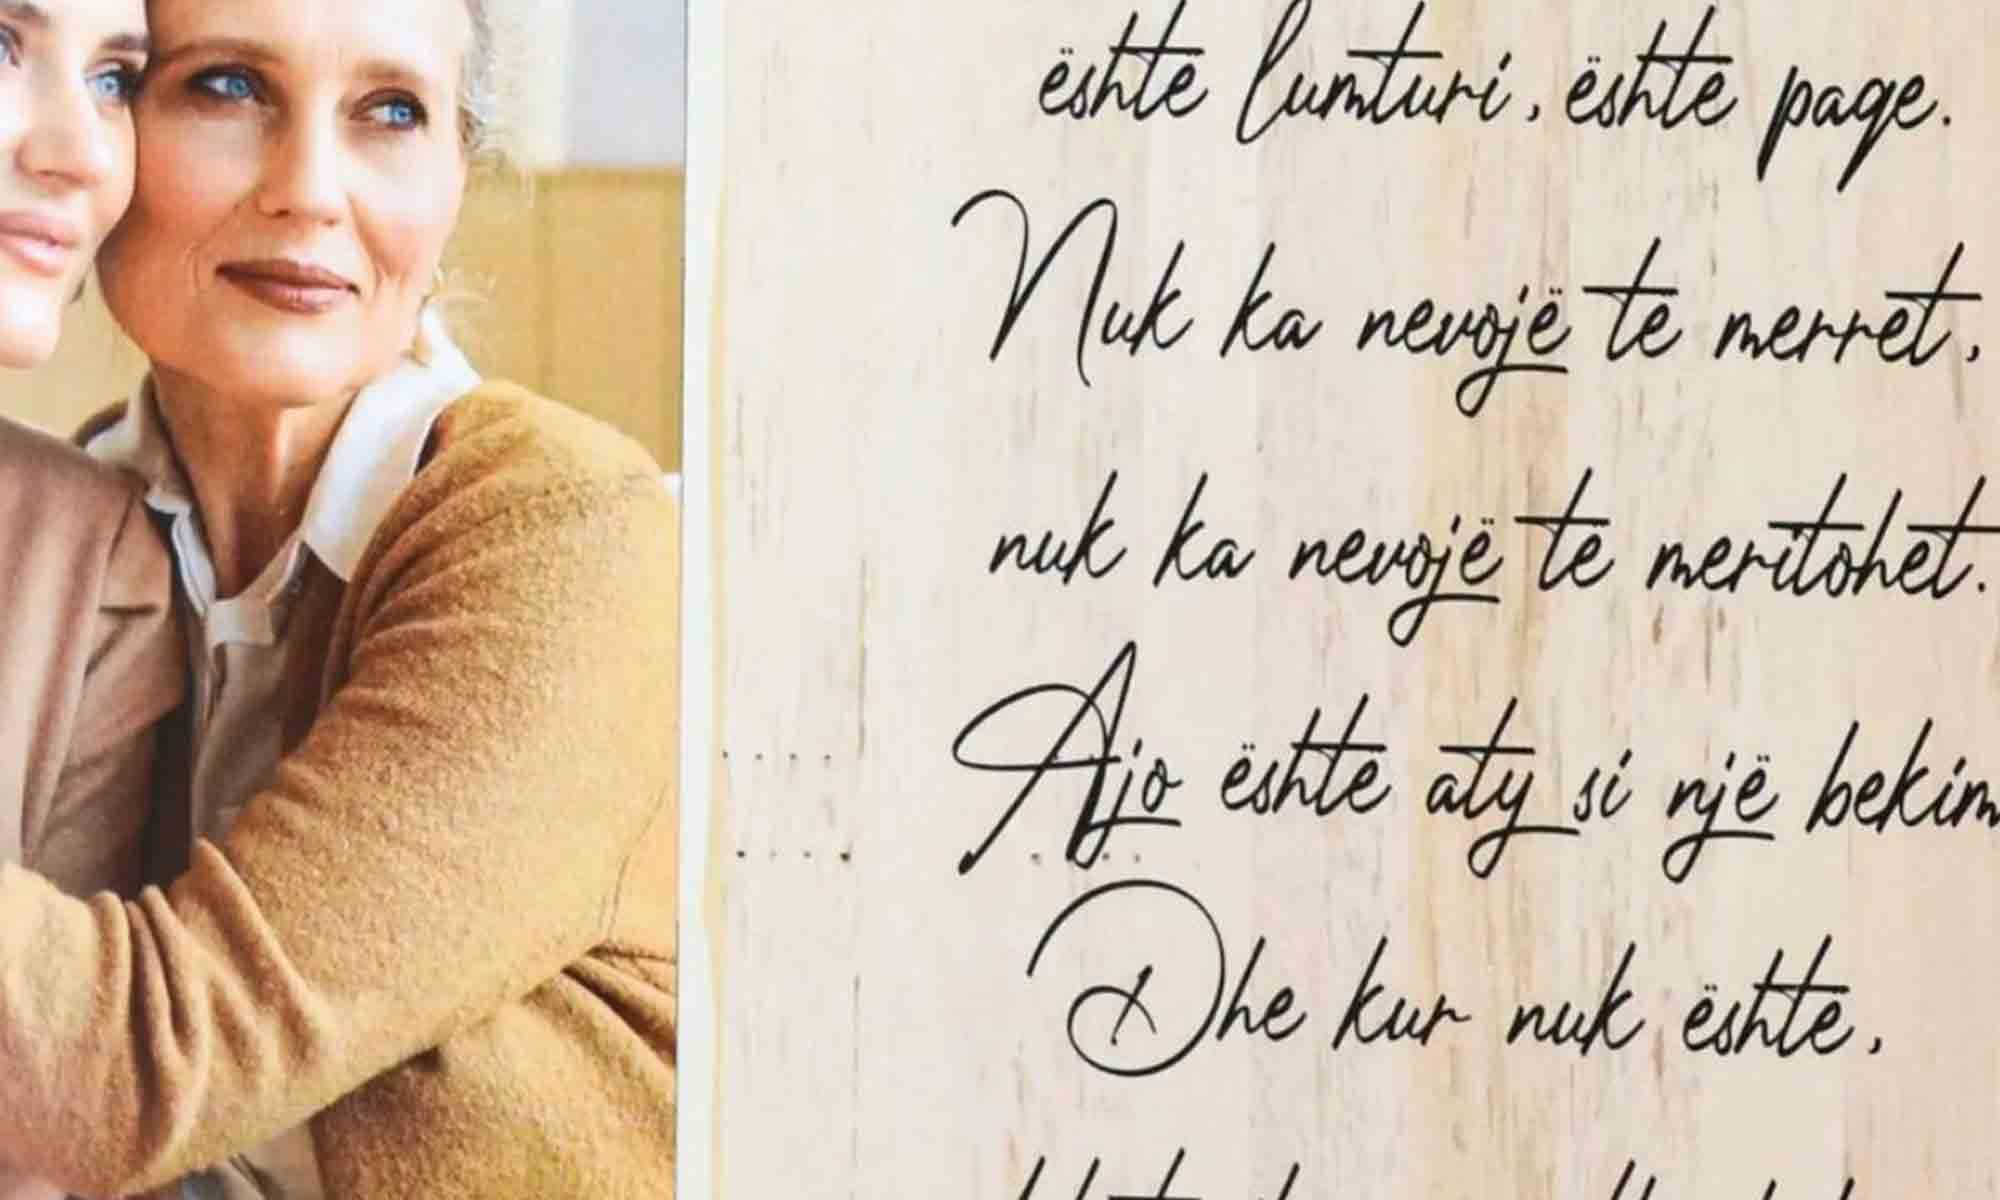 është lumturi, është paqe.
Nuk ka nevojë të merret,
nuk ka nevojë të meritohet.
Ajo është aty si një bekim
Dhe kur nuk është,